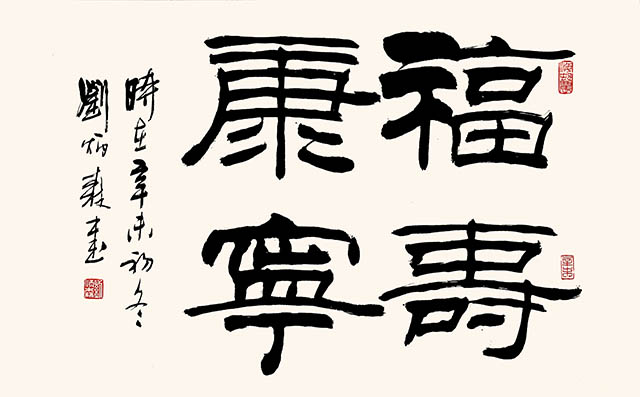 福壽
康寧
時在辛未初冬
劉炳森書